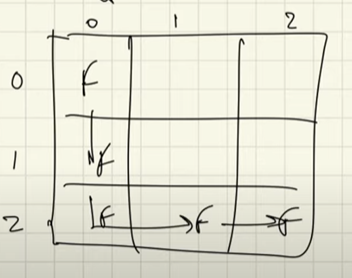 0 1 2
0 F
1 F
2 F F F